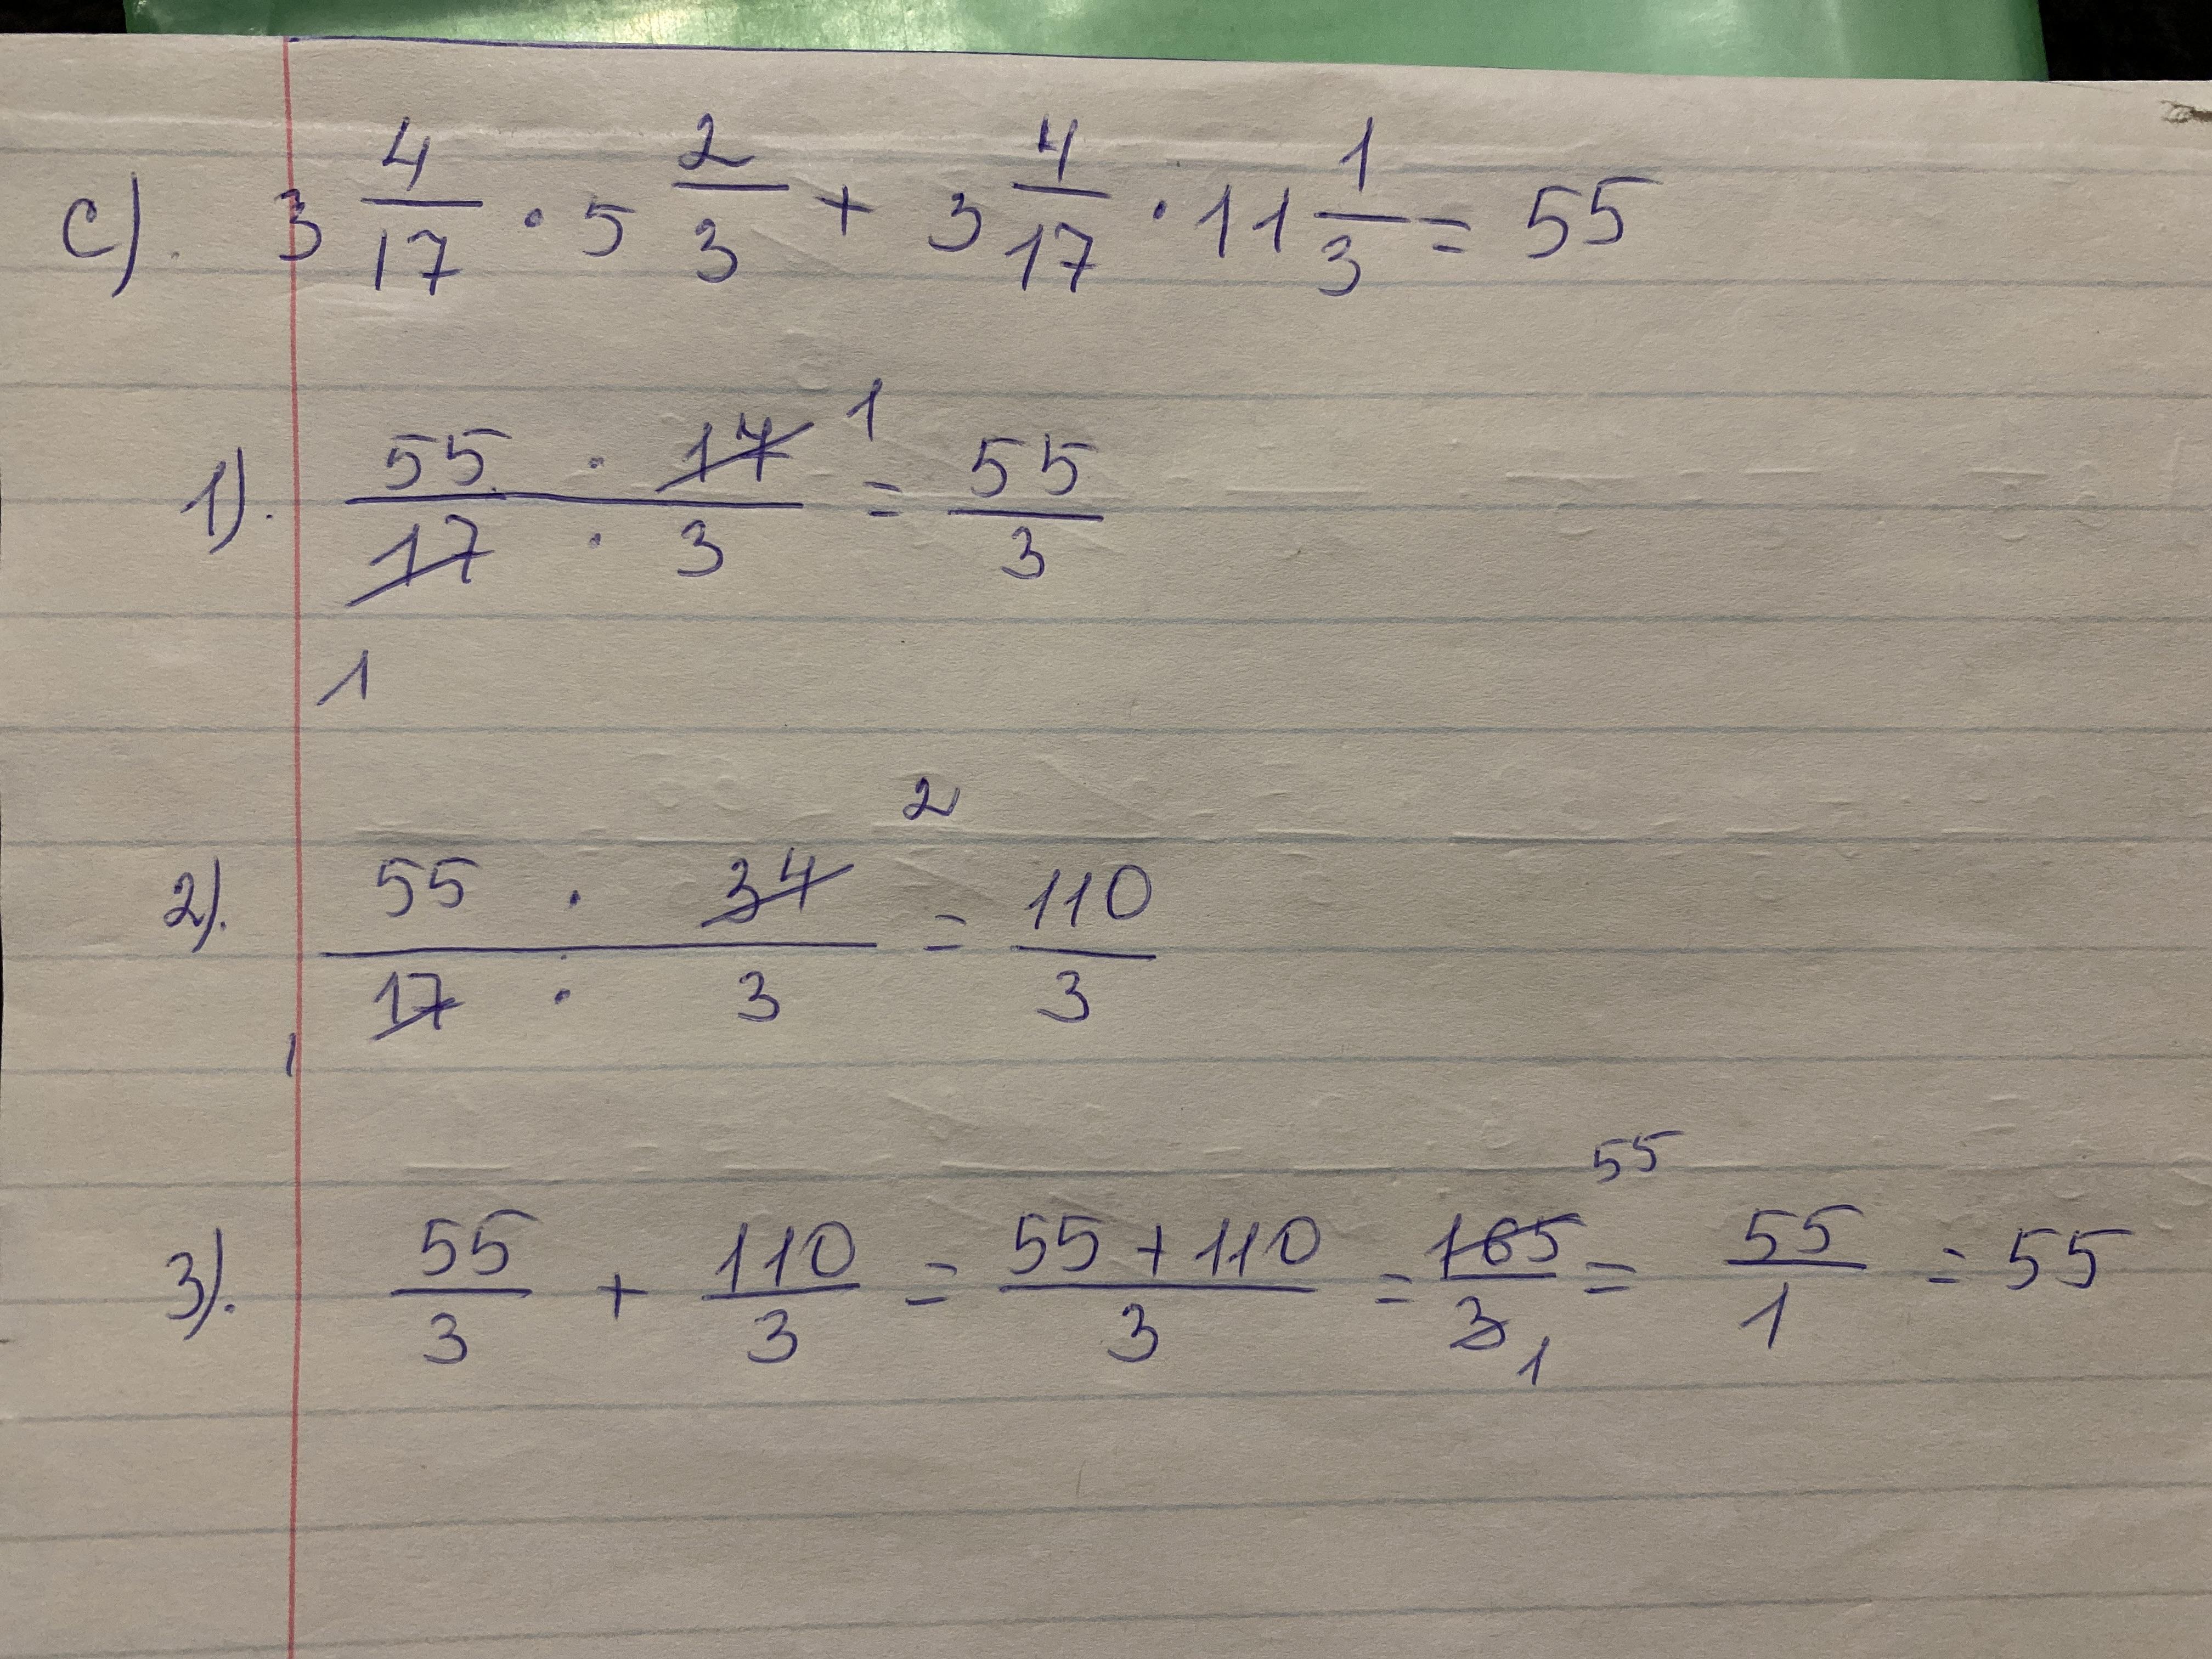 c). 3 4/17 · 5 2/3 + 3 4/17 · 11 1/3 = 55
1). 55 · 17 1 / 17 · 3 = 55/3
1
2). 55 · 34 2 / 17 · 3 = 110/3
1
3). 55/3 + 110/3 = 55 + 110 / 3 = 165 55 / 3 1 = 55/1 = 55